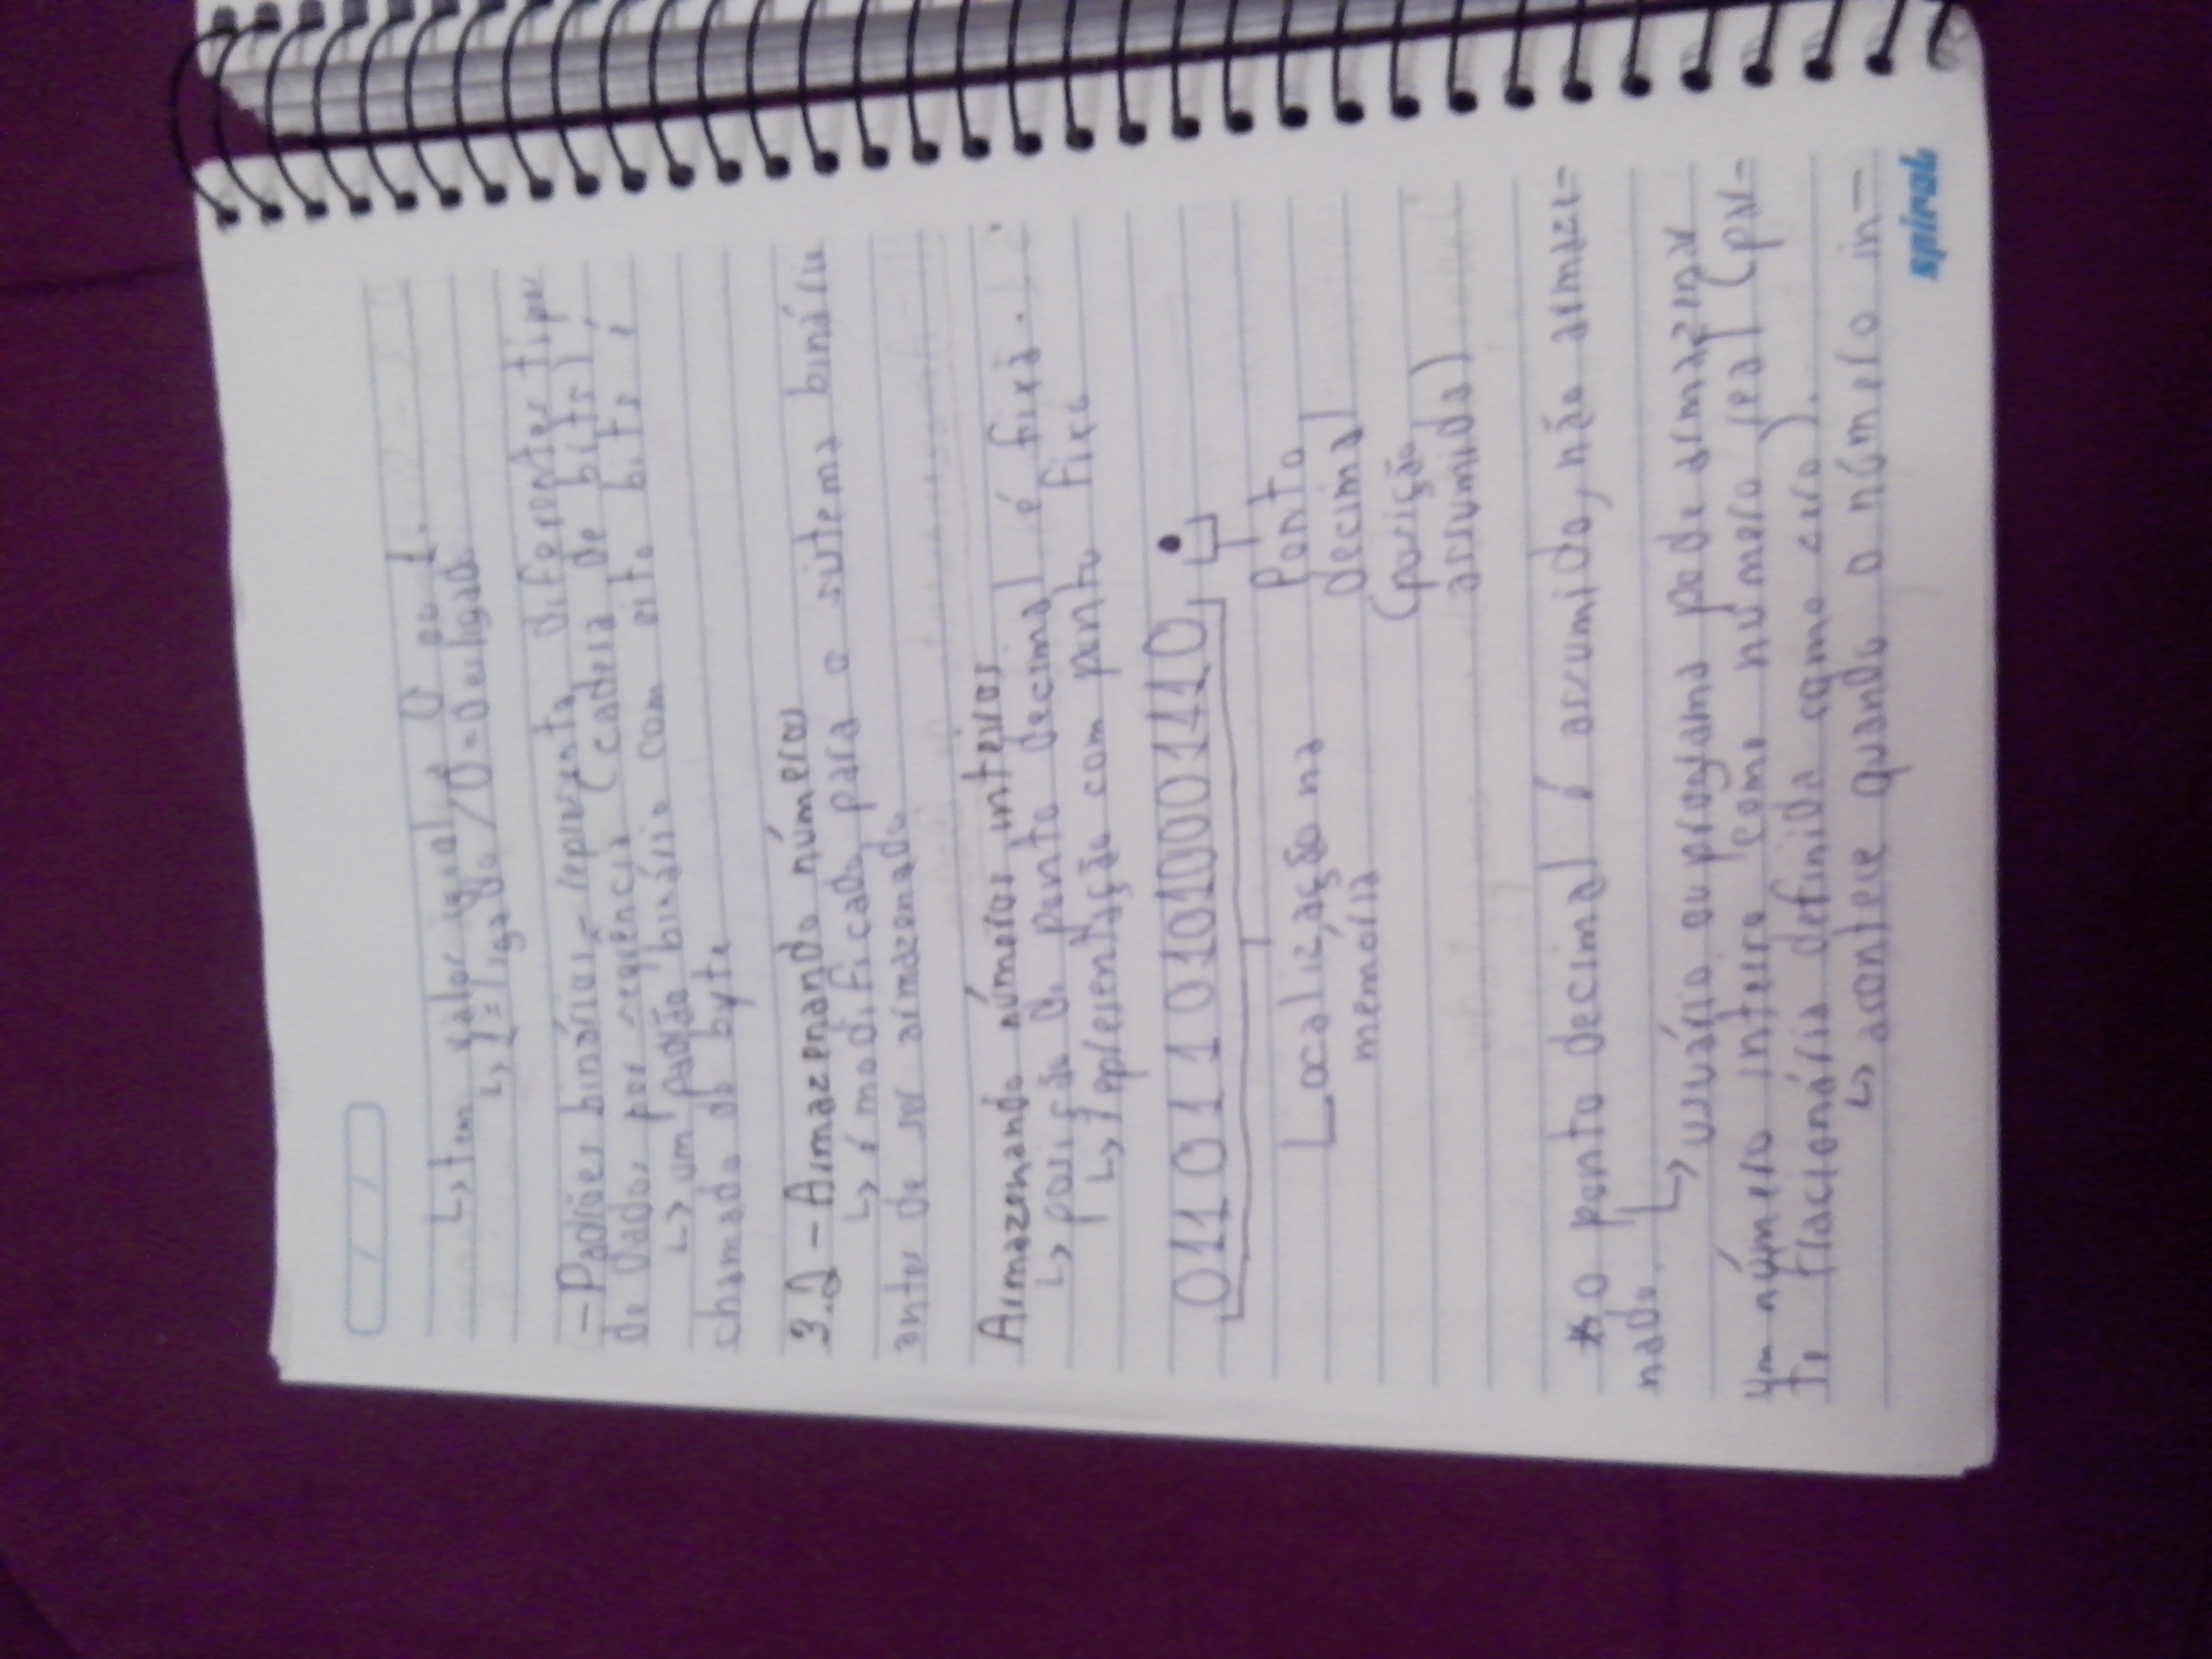 ↳ tem valor igual a 0 ou 1.
↳ 1 = ligado / 0 = desligado
- Padrões binários - representa diferentes tipos
de dados por seqüência (cadeia de bits).
↳ um padrão binário com oito bits é
chamado de byte
3.2 - Armazenando números
↳ é modificado para o sistema binário
antes de ser armazenado
Armazenando números inteiros
↳ posição do ponto decimal é fixa.
↳ representação com ponto fixo
0110110101010001110 .
Localização na
memória
Ponto
decimal
(posição
assumida)
* o ponto decimal é assumido, não armaze-
nado.
↳ usuário ou programa pode armazenar
um número inteiro como número real (par-
te fracionária definida como zero).
↳ acontece quando o número in-
spiral